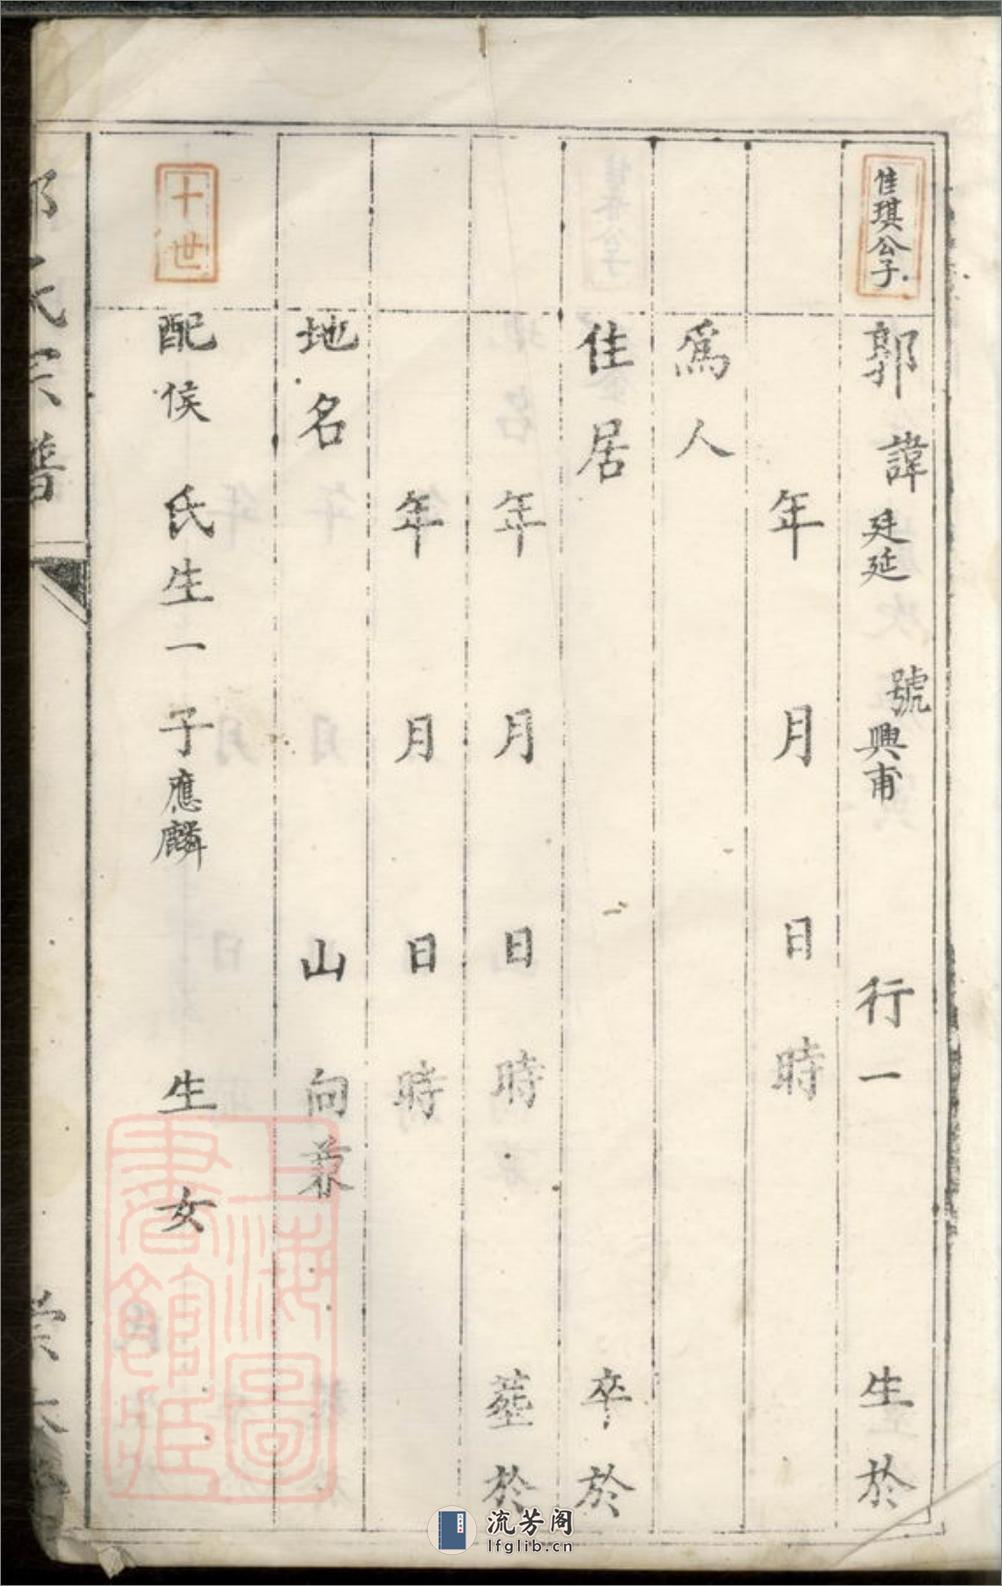 佳琪公子
郭諱廷延號興甫行一生於
年月日時
為人
住居卒於
年月日時塟於
年月日時
地名山向兼
十世
配侯氏生一子應麟生女
氏宗譜
上海圖書館藏
流芳阁
lfglib.cn